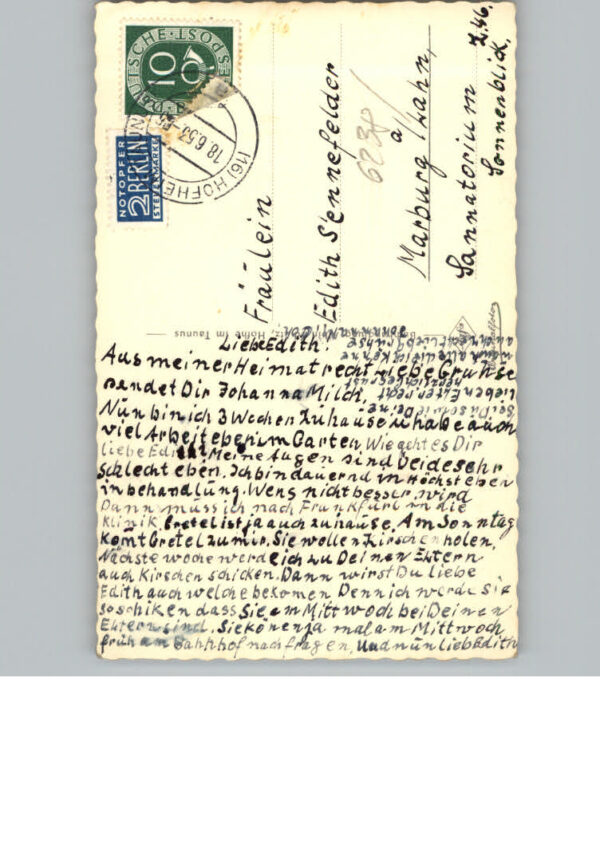 Liebe Edith!
Aus meiner Heimat recht liebe Grühse
sendet Dir Johanna Milch.
Nün bin ich 3 Wochen zuhause ü habe auch
viel Arbeit eben im Garten Wie geht es Dir
liebe Edith Meine Augen sind beide sehr
schlecht eben. Ich bin dauernd in Höchst eben
in behandlüng. Wens nicht besser wird
Dann muss ich nach Frankfurt in die
Klinik. Gretel ist ja auch zuhause. Am Sonntag
komt Gretel zu mir. Sie wollen Kirschen holen.
Nächste woche werde ich zu Deinen Eltern
auch Kirschen schicken. Dann wirst Du liebe
Edith auch welche bekomen Denn ich werde Sie
so schiken dass Sie am Mittwoch bei Deinen
Eltern sind. Sie könen ja mal am Mittwoch
früh am Bahhhof nachfragen. Und nün lieb Edith
Sei Du sowie Deine
lieben Eltern recht
herzlich gegrüst
auch recht liebe Grühse
Johanna Milch
Fräulein
Edith Sennefelder
6238
a/
Marburg/Lahn,
Sannatorium
Sonnenblick,
Z.46.
DEUTSCHE POST
10
(16) HOFHE
18.6.53
NOTOPFER
2 BERLIN
STEUERMARKE
Hofheim Taunus